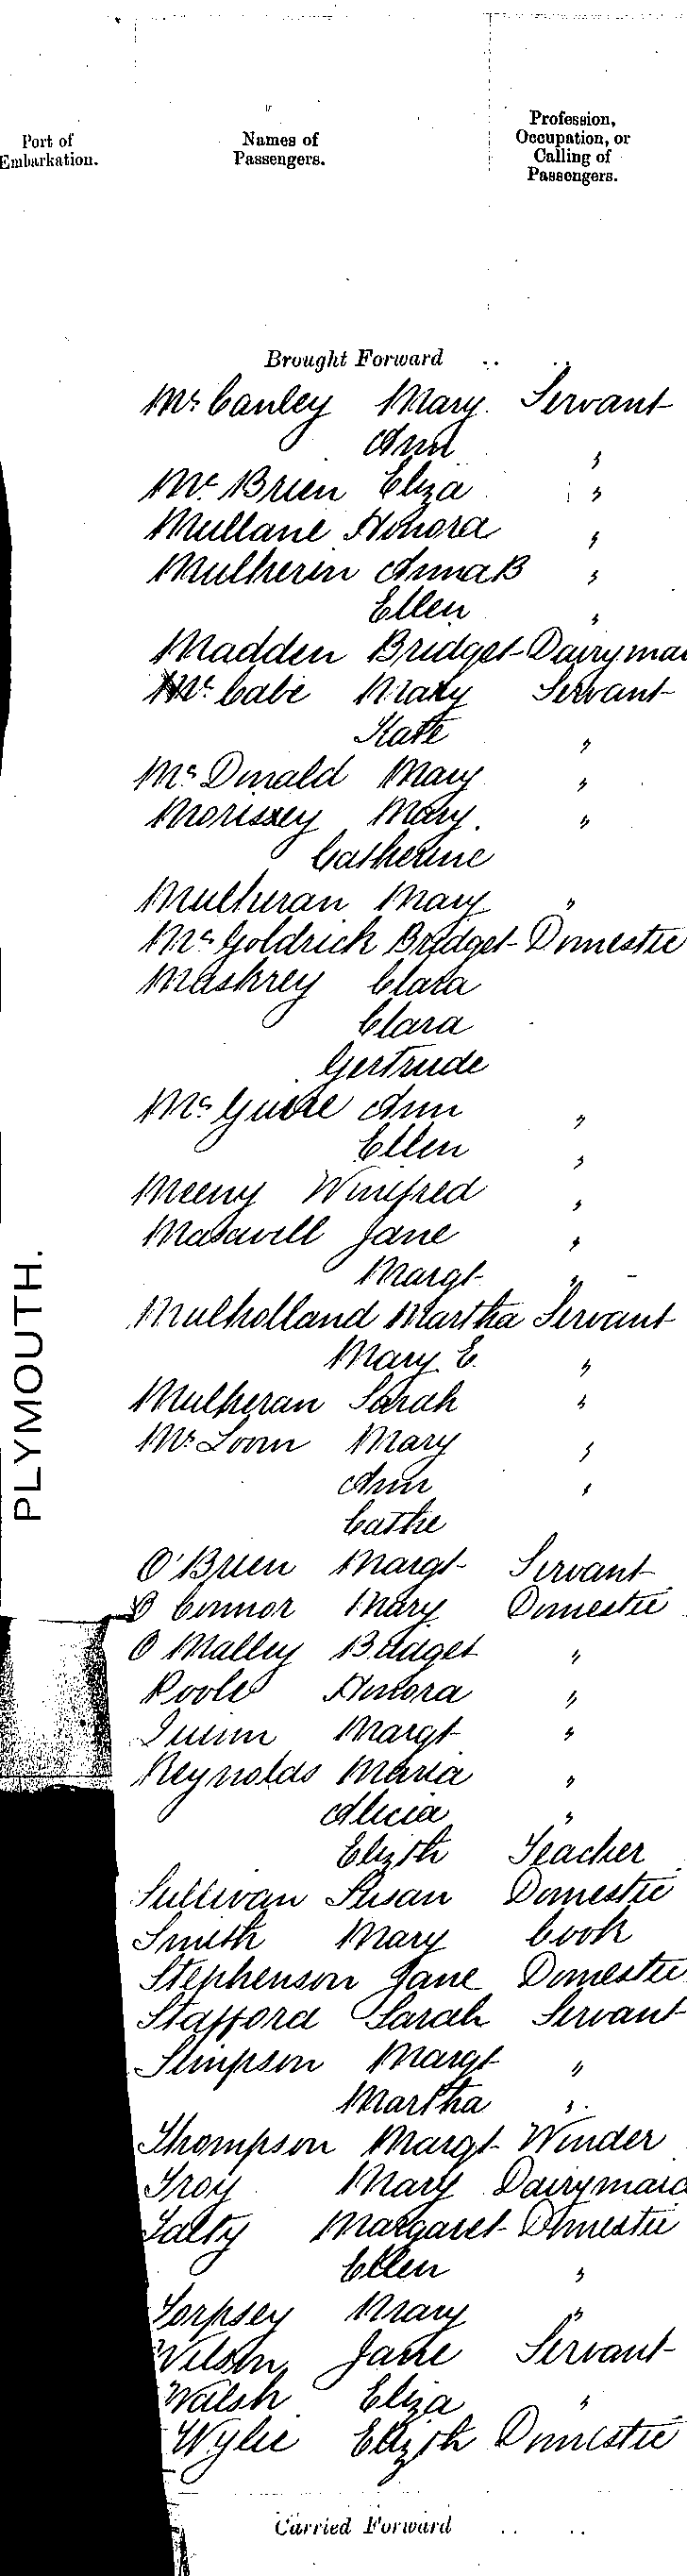 Port of Embarkation.
Names of Passengers.
Profession, Occupation, or Calling of Passengers.
Brought Forward .. ..
McCauley Mary Servant
Ann "
McBrien Eliza "
Mullane Honora "
Mulherin Anna B "
Ellen "
Madden Bridget Dairymai
McCabe Mary Servant
Kate "
McDonald Mary "
Morissey Mary "
Catherine
Mulheran Mary "
McGoldrick Bridget Domestic
Maskrey Clara
Clara
Gertrude
McGuire Ann "
Ellen "
Meeny Winifred "
Maxwell Jane "
Margt "
Mulholland Martha Servant
Mary E. "
Mulheran Sarah "
McLoon Mary "
Ann "
Cathe
PLYMOUTH.
O'Brien Margt Servant
O Connor Mary Domestic
O Malley Bridget "
Poole Honora "
Quinn Margt "
Reynolds Maria "
Alicia "
Elizth Teacher
Sullivan Susan Domestic
Smith Mary Cook
Stephenson Jane Domestic
Stafford Sarah Servant
Simpson Margt "
Martha "
Thompson Margt Winder
Troy Mary Dairymaid
Talty Margaret Domestic
Ellen "
Torpsey Mary "
Wilson Jane Servant
Walsh Eliza "
Wylie Elizth Domestic
Carried Forward .. ..